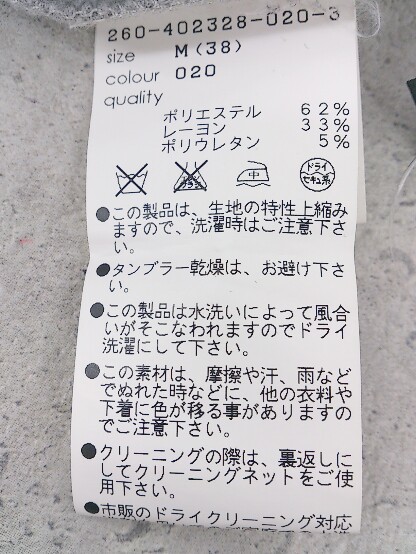 260-402328-020-3
size M(38)
colour 020
quality
ポリエステル 62%
レーヨン 33%
ポリウレタン 5%
エンソ サラシ 中 ドライ セキユ系
●この製品は、生地の特性上縮み
ますので、洗濯時はご注意下さ
い。
●タンブラー乾燥は、お避け下さ
い。
●この製品は水洗いによって風合
いがそこなわれますのでドライ
洗濯にして下さい。
●この素材は、摩擦や汗、雨など
でぬれた時などに、他の衣料や
下着に色が移る事がありますの
でご注意下さい。
●クリーニングの際は、裏返しに
してクリーニングネットをご使
用下さい。
●市販のドライクリーニング対応